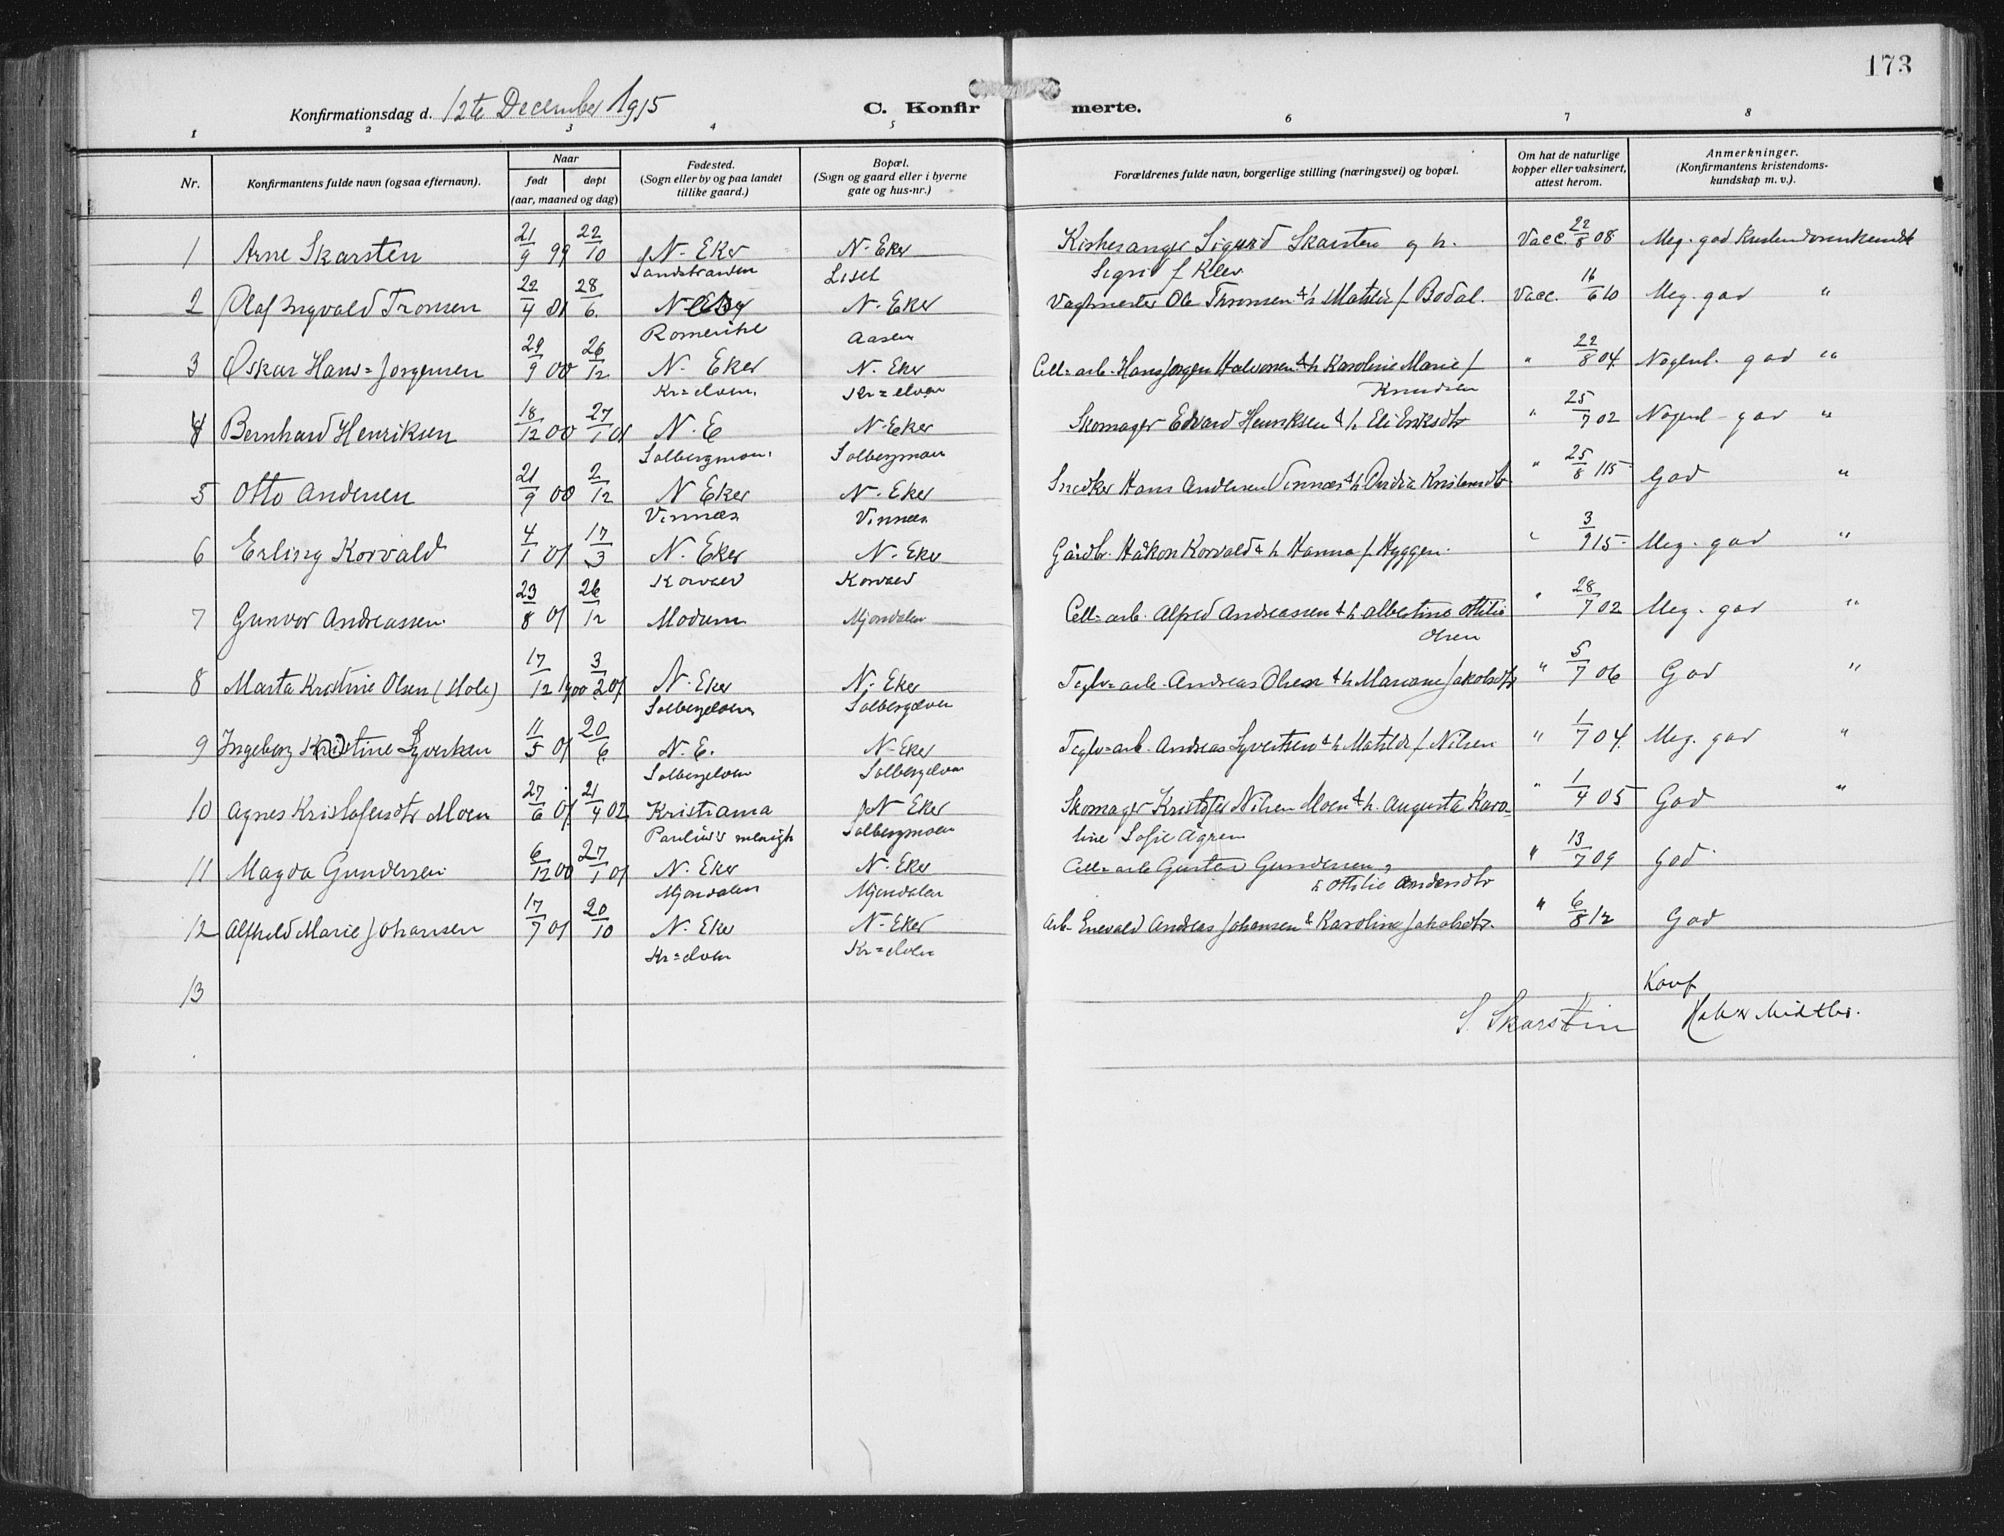 173
Konfirmationsdag d. 12te December 1915
C. Konfirmerte.
1 2 3 4 5 6 7 8
Nr. Konfirmantens fulde navn (ogsaa efternavn). Naar født døpt (aar, maaned og dag) Fødested. (Sogn eller by og paa landet tillike gaard.) Bopæl. (Sogn og gaard eller i byerne gate og hus-nr.) Forældrenes fulde navn, borgerlige stilling (næringsvei) og bopæl. Om hat de naturlige kopper eller vaksinert, attest herom. Anmerkninger. (Konfirmantens kristendoms-kundskap m. v.).
1 Arne Skarsten 21/9 99 22/10 N. Eker N. Eker Kirkesanger Sigurd Skarsten og h. Vacc. 22/8 08 Meg. god Kristendomskundsk
Sandstranden Lisel Sigrid f Klev
2 Olaf Ingvald Tronsen 22/4 01 28/6 N. Eker Vagtmester Ole Thronsen & h Matilde f Bodal. Vacc. 16/6 10 Meg. god "
Romerike Aasen
3 Oskar Hans=Jørgensen 29/9 00 26/12 N. Eker N. Eker Cell=arb. Hans Jørgen Halvorsen & h Karoline Marie f " 22/8 04. Nogenl. god "
Kr=elven. Kr=elven Knudsen
4 Bernhard Henriksen 18/12 00 27/1 01 N. E N. Eker Skomager Edvard Henriksen & h Eli Eriksdtr " 25/7 02 Nogenl. god "
Solbergmoen Solbergmoen
5 Otto Andersen 21/9 00 2/12 N Eker N. Eker Snedker Hans Andersen Vinnæs & h " 25/8 115 God "
Vinnæs Vinnæs
6 Erling Korvald 4/1 01 17/3 N. Eker N. Eker Gårdbr. Håkon Korvald & h Hanna f Hyggen. " 3/9 15. Meg. god "
Korvald Korvald
7 Gunvor Andreassen. 23/8 01 26/12 Modum Mjøndalen Cell=arb. Alfred Andreassen & h Albertine Otilie " 28/7 02 Meg. god "
Olsen
8 Marta Kristine Olsen (Hole) 17/12 1900 3/2 01 N. Eker N. Eker Teglv=arb. Andreas Olsen & h Mariane Jakobsdtr " 5/7 06 God "
Solbergelven Solbergelven
9 Ingeborg Kristine Syvertsen 11/5 01 20/6 N. E. N. Eker Teglv=arb. Andreas Syvertsen & h Matilde f Nilsen " 1/7 04. Meg. god "
Solbergelven Solbergelven
10 Agnes Kristofersdtr Moen 27/6 01 21/4 02 Kristiania N Eker Skomager Kristofer Nilsen Moen & h. Augusta Karo- " 1/4 05 God "
Paulus's menigh Solbergmoen line Sofie Ågren
11 Magda Gundersen 6/12 00 27/1 01 N. Eker N. Eker Cell=arb Gustav Gundersen, " 13/7 09 God
Mjøndalen Mjøndalen & Ottilie Andersdtr
12 Alfhild Marie Johansen 17/7 01 20/10 N. Eker N. Eker Arb. Enevald Andreas Johansen & Karoline Jakobsdtr. " 6/8 12 God
Kr=elven Kr=elven
13 Konf
S. Skarstin